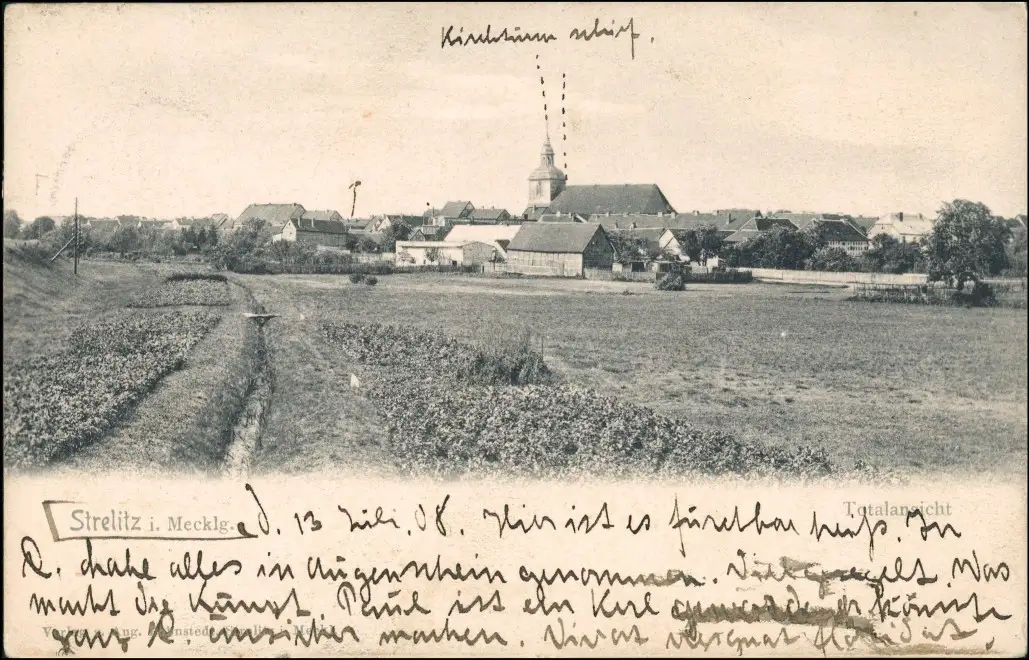 Kirchturm schief.
Totalansicht
Strelitz i. Mecklg. d. 13 Juli. 08. Hier ist es furchtbar heiß. In
R. habe alles in Augenschein genommen. Was
macht die Kunst. Paul ist ein Kerl könnte
Verlag v. Aug.
ganz R. machen. Vivat